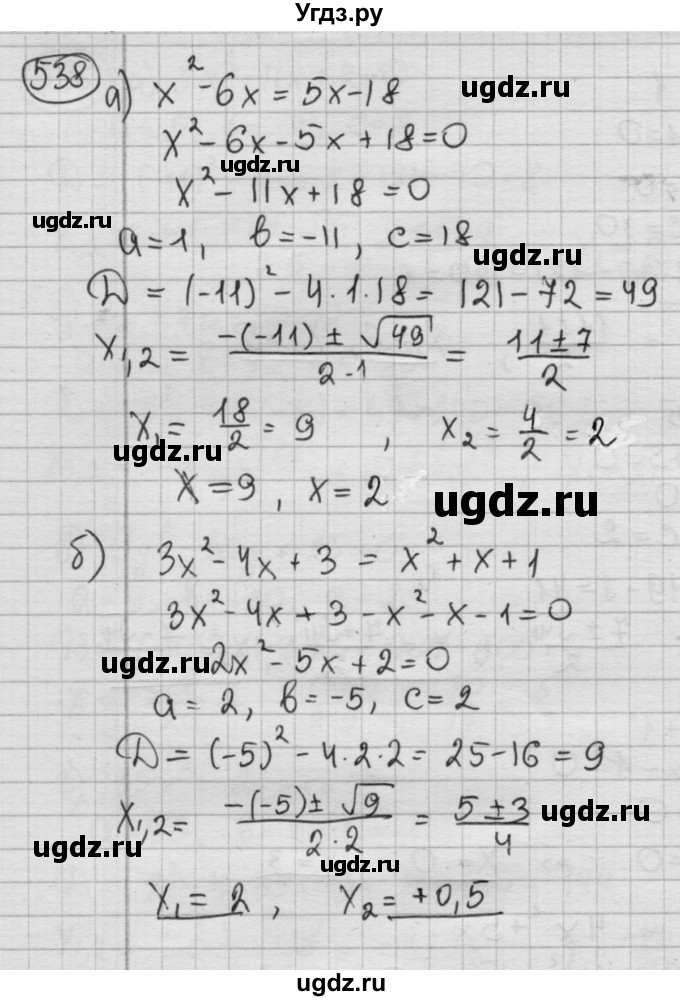 Угдз.ру
538
а) x² - 6x = 5x - 18
ugdz.ru
x² - 6x - 5x + 18 = 0
ugdz.ru
x² - 11x + 18 = 0
ugdz.ru
a = 1, b = -11, c = 18
ugdz.ru
D = (-11)² - 4·1·18 = 121 - 72 = 49
x₁,₂ = (-(-11) ± √49)/(2·1) = (11 ± 7)/2
ugdz.ru
x₁ = 18/2 = 9, x₂ = 4/2 = 2
ugdz.ru
x = 9, x = 2
ugdz.ru
б) 3x² - 4x + 3 = x² + x + 1
3x² - 4x + 3 - x² - x - 1 = 0
ugdz.ru
2x² - 5x + 2 = 0
ugdz.ru
a = 2, b = -5, c = 2
D = (-5)² - 4·2·2 = 25 - 16 = 9
x₁,₂ = (-(-5) ± √9)/(2·2) = (5 ± 3)/4
ugdz.ru
ugdz.ru
ugdz.ru
x₁ = 2, x₂ = +0,5
ugdz.ru
ugdz.ru